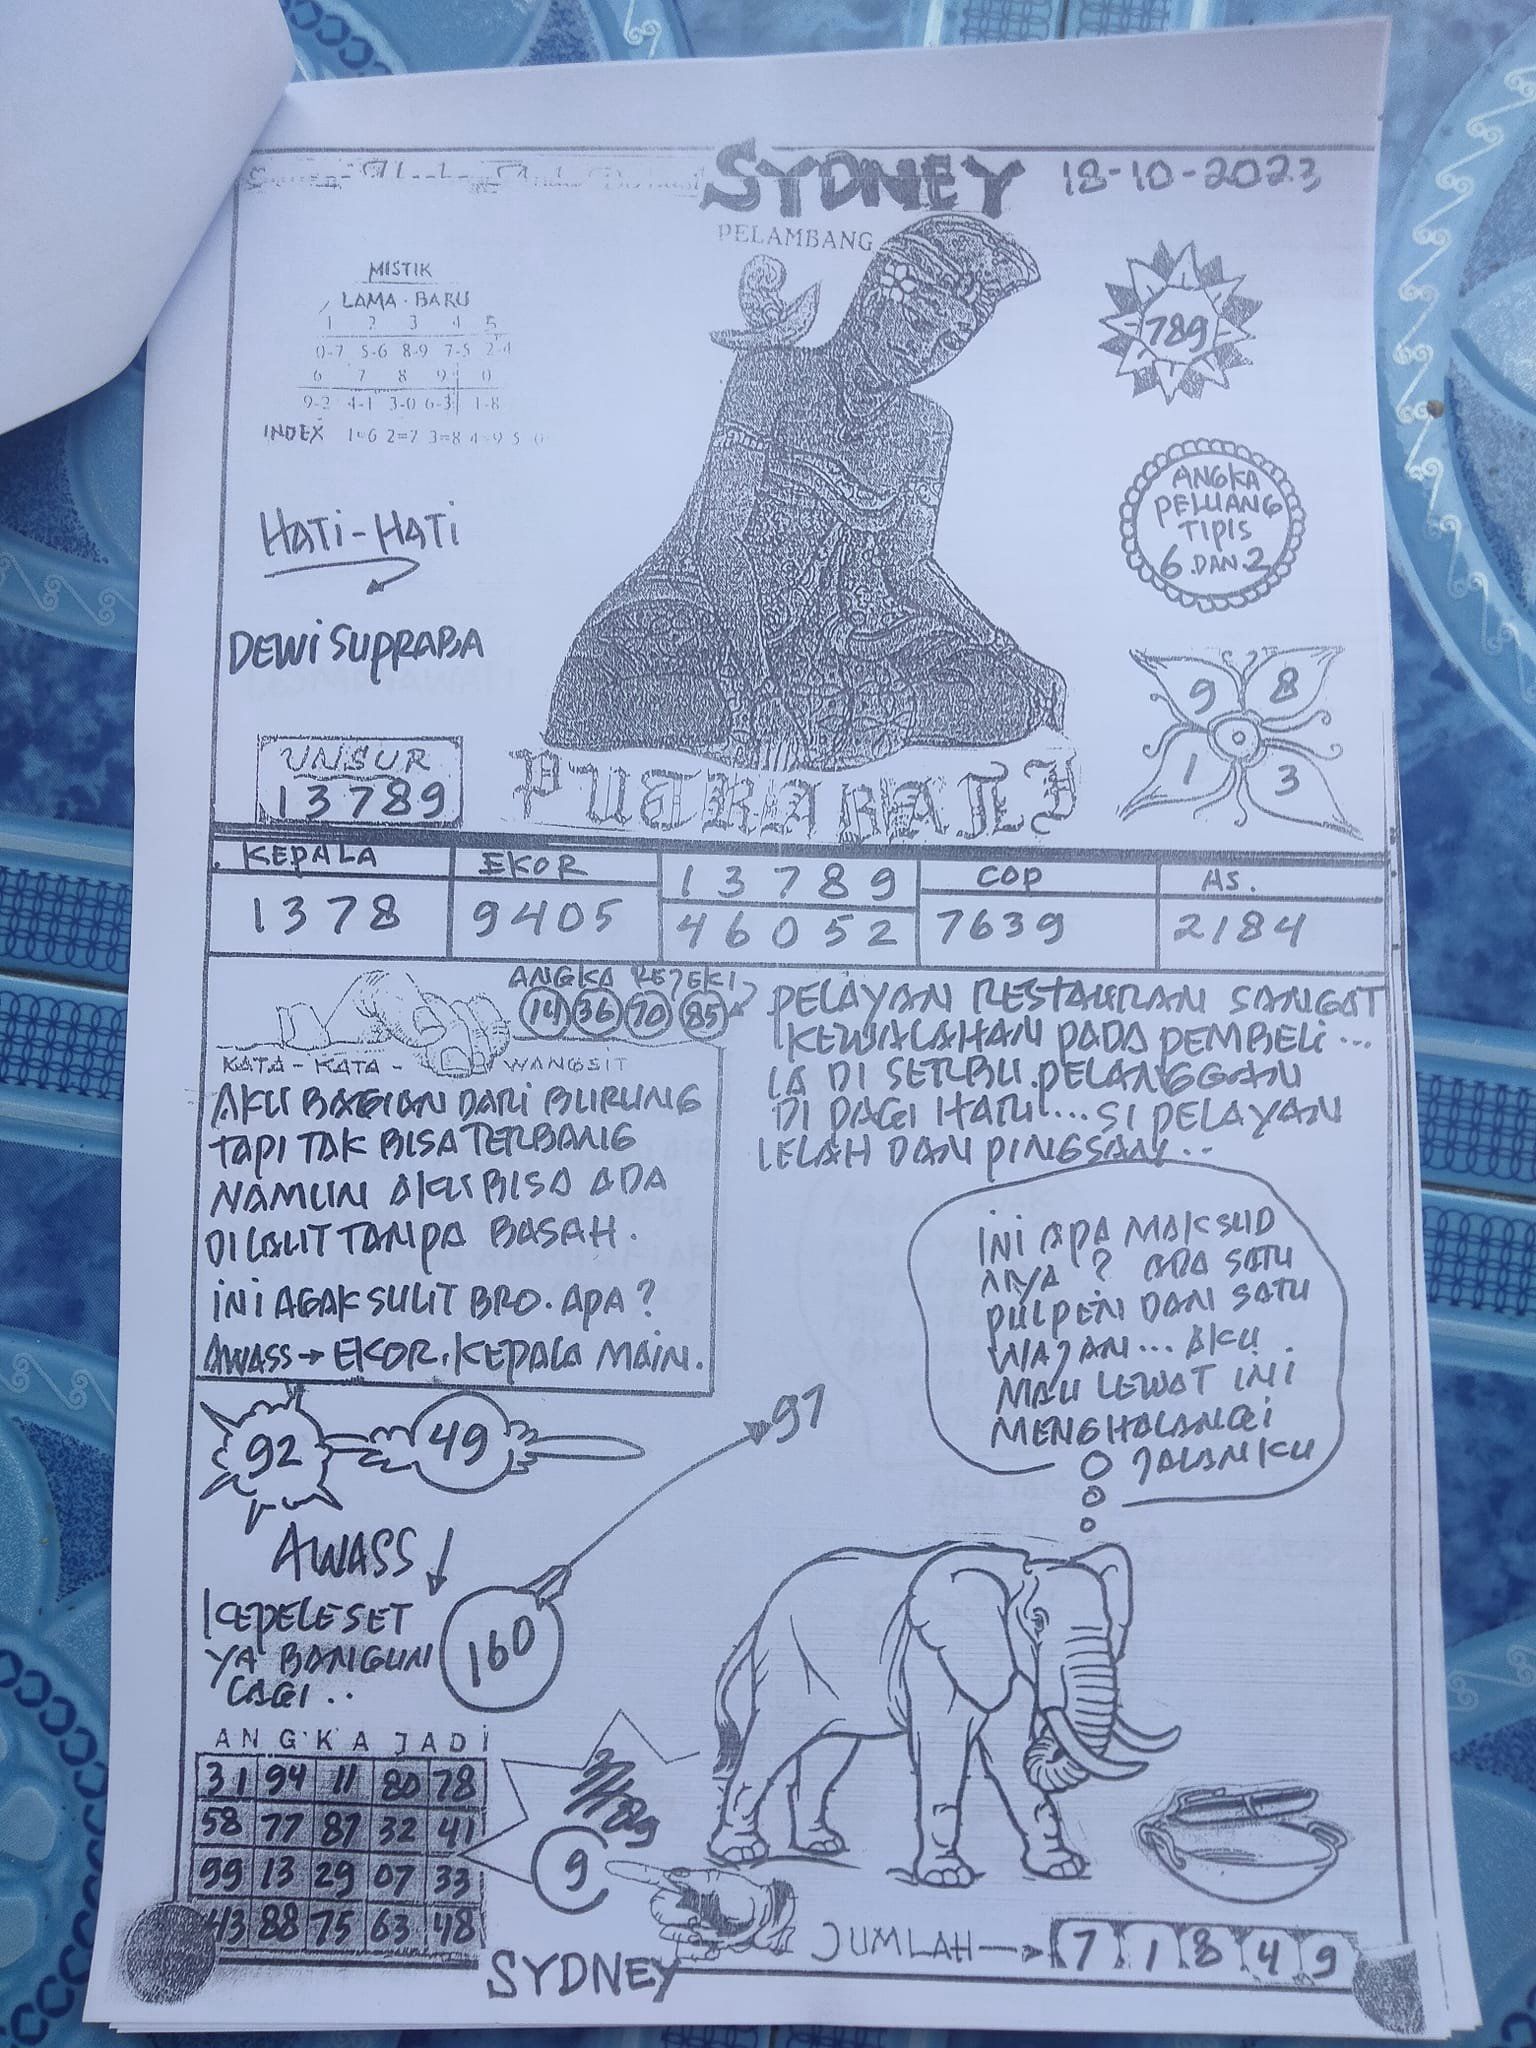 SYDNEY 18-10-2023
PELAMBANG
MISTIK
LAMA . BARU
1 2 3 4 5
0-7 5-6 8-9 7-5 2-4
6 7 8 9 0
9-2 4-1 3-0 6-3 1-8
INDEX 1=6 2=7 3=8 4=9 5 0
789
HATI-HATI
ANGKA
PELUANG
TIPIS
6 DAN 2
DEWI SUPRABA
9 8
1 3
UNSUR
13789
PUTRA BALI
KEPALA EKOR 1 3 7 8 9 COP AS.
1378 9405 4 6 0 5 2 7639 2184
ANGKA REJEKI
14 36 70 85
KATA - KATA - WANGSIT
AKU BAGIAN DARI BURUNG
TAPI TAK BISA TERBANG
NAMUN AKU BISA ADA
DI LAUT TANPA BASAH.
INI AGAK SULIT BRO. APA?
AWASS → EKOR, KEPALA MAIN.
PELAYAN RESTAURAN SANGAT
KEWALAHAN PADA PEMBELI...
IA DI SERBU PELANGGAN
DI PAGI HARI... SI PELAYAN
LELAH DAN PINGSAN...
INI APA MAKSUD
NYA? ADA SATU
PULPEN DAN SATU
WAJAN... AKU
MAU LEWAT INI
MENGHALANGI
JALANKU
92 49
97
AWASS
KEPELESET
YA BANGUN
LAGI..
160
ANGKA JADI
31 94 11 80 78
58 77 87 32 41
99 13 29 07 33
43 88 75 63 48
9
SYDNEY
JUMLAH → 7 1 8 4 9